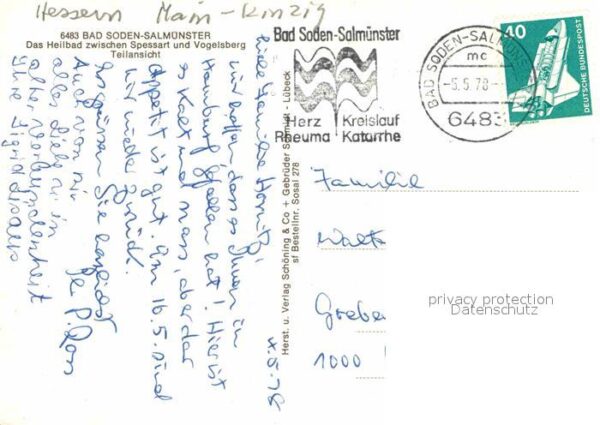 Hessen Main-Kinzig
6483 BAD SODEN-SALMÜNSTER
Das Heilbad zwischen Spessart und Vogelsberg
Teilansicht
4.5.78
Liebe Familie
wir hoffen dass es Ihnen in
Hamburg gefallen hat! Hier ist
es kalt und nass, aber der
Appetit ist gut. Am 16.5. sind
wir wieder zurück.
Es grüssen Sie herzlichst
Auch von mir
alles Liebe in
alter Verbundenheit
Ihre Sigrid
Herst. u. Verlag Schöning & Co + Gebrüder Schmidt - Lübeck
sf Bestellnr. Sosal 278
Bad Soden-Salmünster
Herz Kreislauf
Rheuma Katarrhe
BAD SODEN-SALMÜNS
mc
-5.5.78
6483
40
DEUTSCHE BUNDESPOST
Familie
Walt
Grebe
1000
privacy protection
Datenschutz